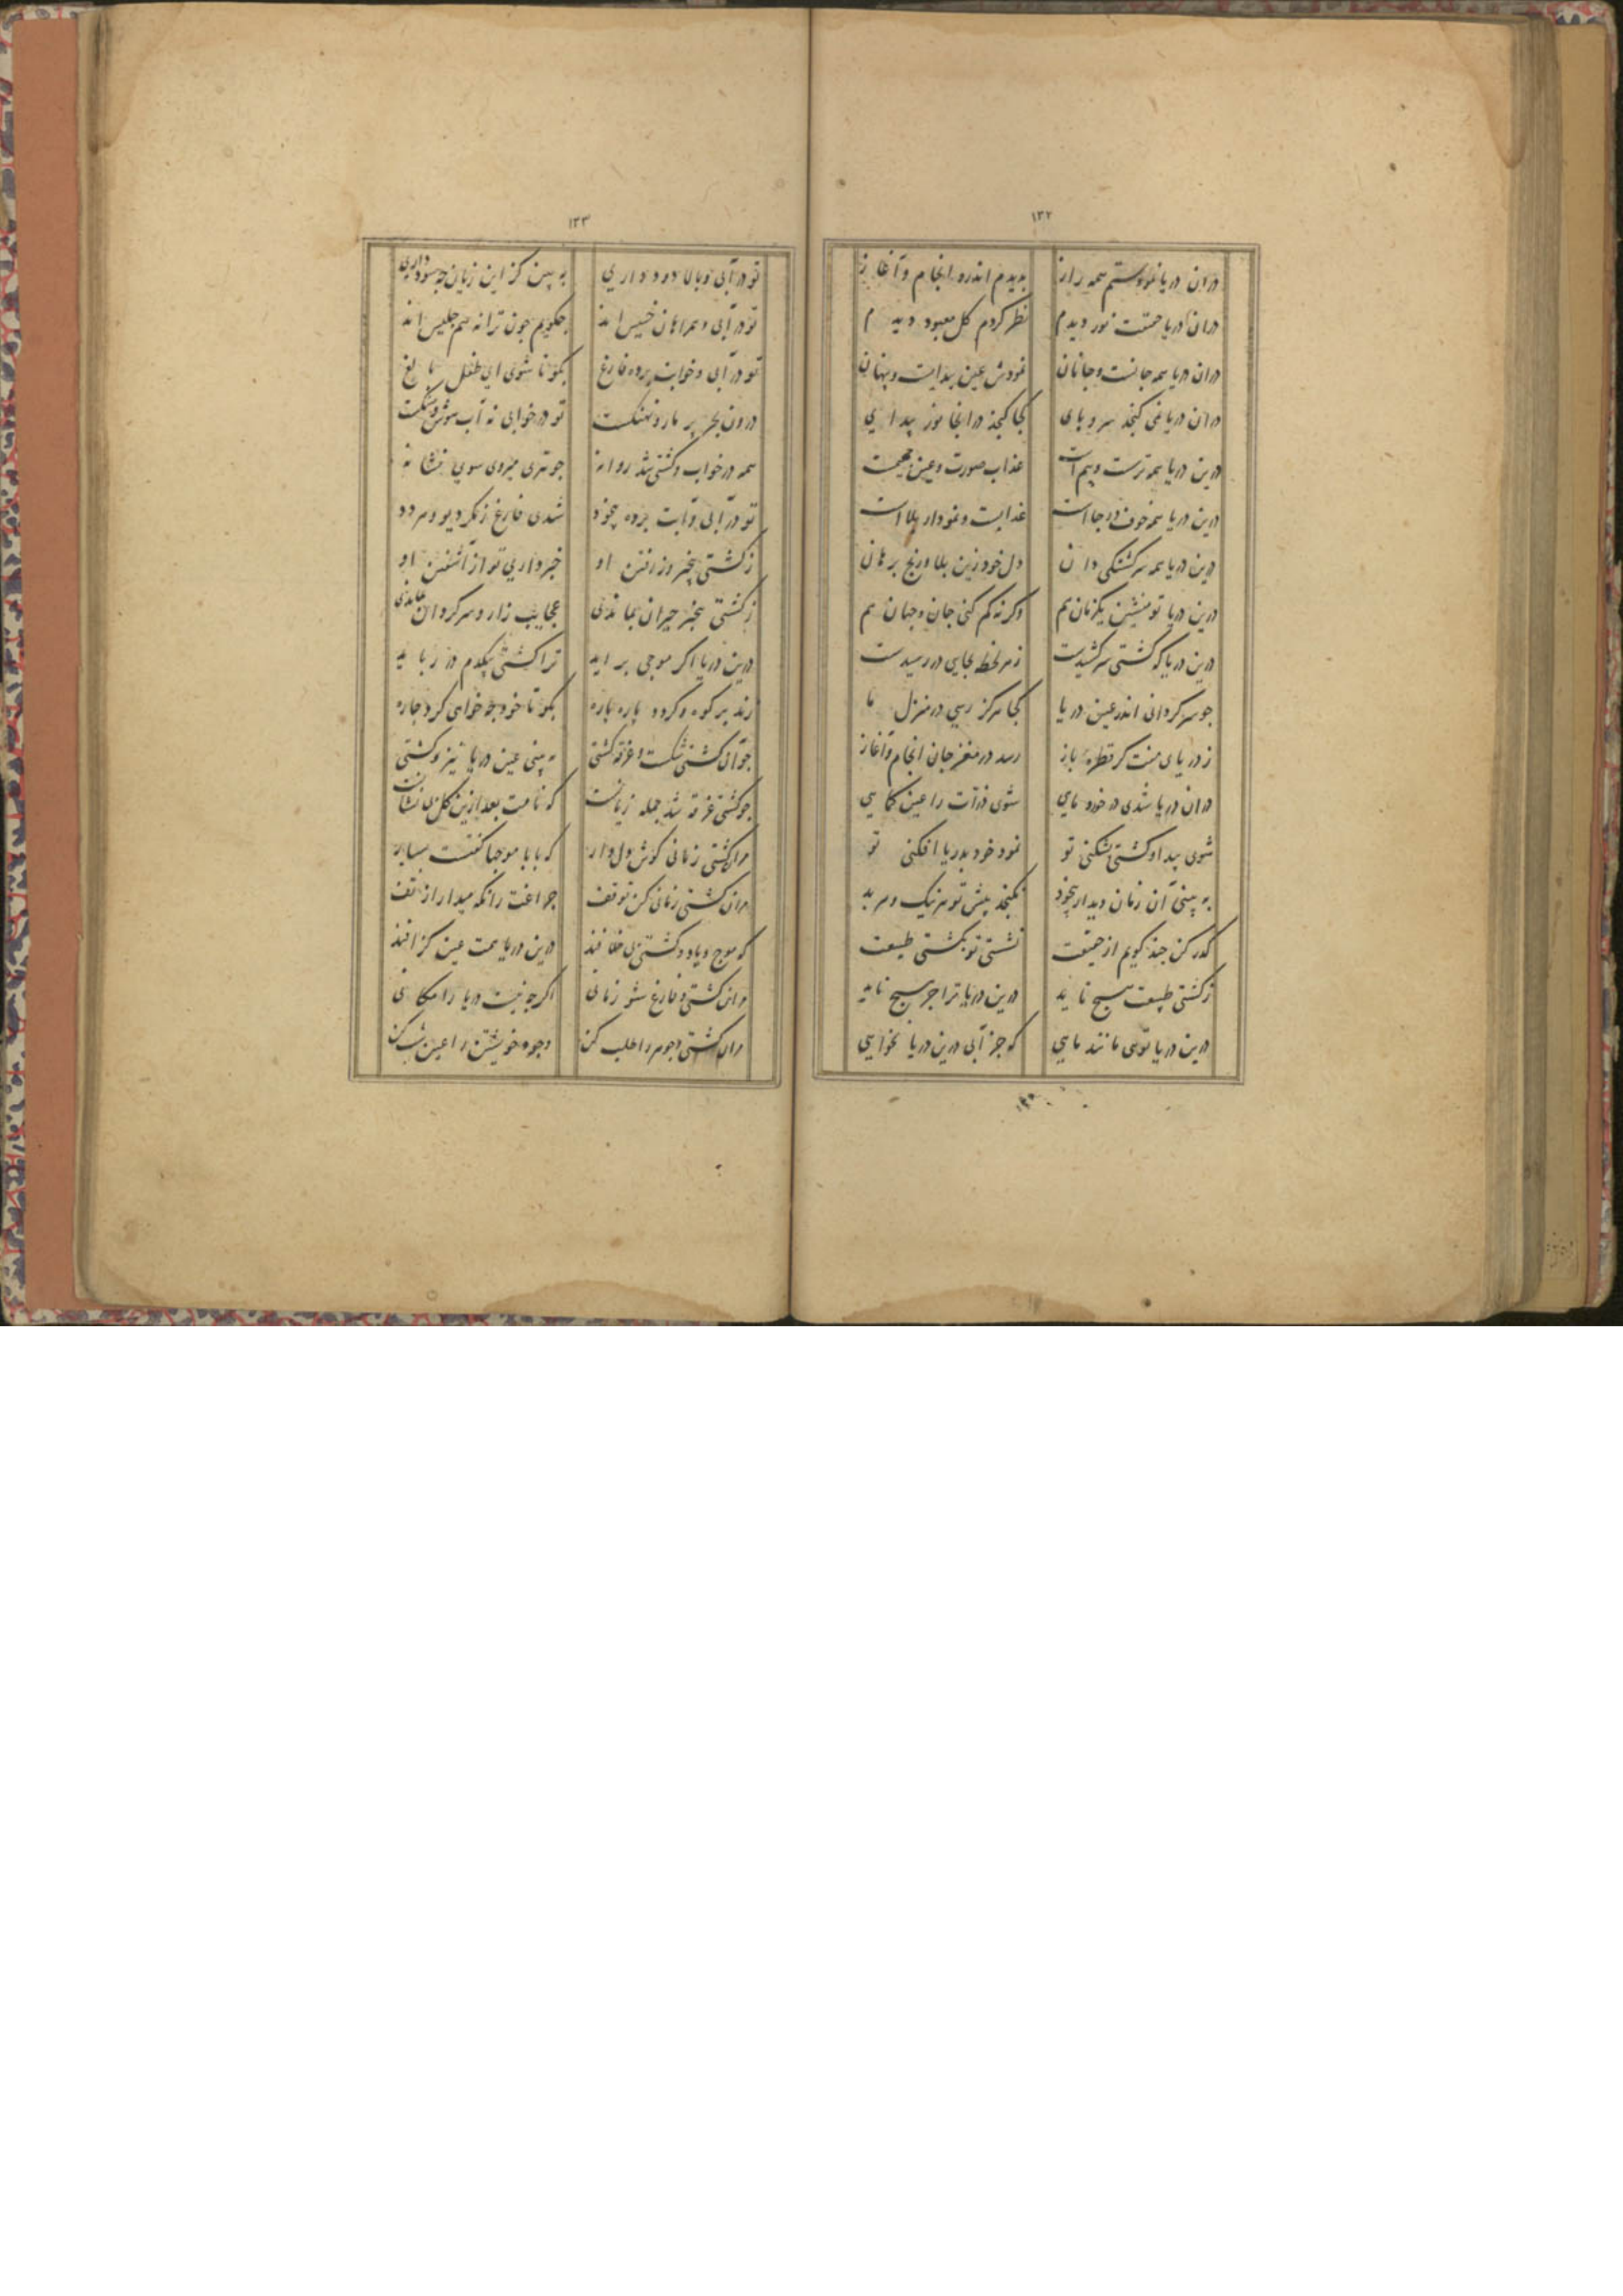 ۱۳۲
دران دریا نمودستم همه راز بدیدم اندرو انجام و آغاز
دران دریا حقیقت نور دیدم نظر کردم کل معبود دیدم
دران دریا همه جانست و جانان نمودش عین پیدایست و پنهان
دران دریا نمی کنجد سر و پای کجا کنجد در انجا نور پیدایی
درین دریا همه ترست و بیم است عذاب صورت و عین
درین دریا همه خوف و رجا است عذابست و نمودار بلا است
درین دریا همه سرکشتکی دان دل خود زین بلا و رنج برهان
درین دریا تو منشین یکزمان هم وکرنه کم کنی جان و جهان هم
درین دریا که کشتی سر کشیدست زهر لحظه بجایی در رسیدست
جو سرکردانی اندر عین دریا کجا هرکز رسی در منزل ما
ز دریای منت کر قطره باز رسد در مغز جان انجام و آغاز
دران دریا شدی در خورد مایی شوی ذرات را عین کمایی
شوی پیدا و کشتی بشکنی تو نمود خود بدریا افکنی تو
به بینی آن زمان دیدار بیخود نکنجد پیش تو هر نیک و هر بد
کذر کن چند کویم از حقیقت نشستی تو بکشتی طبیعت
ز کشتی طبیعت هیچ ناید درین دریا ترا جز هیچ ناید
درین دریا توی مانند ماهی که جز آبی درین دریا نخواهی
۱۳۳
تو در آبی و بالا دود داری به بین کز این زیان چه سود داری
تو در آبی و همراهان خسیس اند چکویم چون ترا نه هم جلیس اند
تو در آبی و خوابت برده فارغ بکو تا شوی ای طفل بالغ
درون بحر پر مار و نهنکست تو در خوابی نه آب
همه در خواب و کشتی شد روانه جو تیری میروی سوی نشانه
تو در آبی و آبت برده بیخود شدی فارغ ز مکر دیو و هر دد
ز کشتی بیخبر وز رفتن او خبر داری تو از آشفتن او
ز کشتی بیخبر حیران بماندی عجایب زار و سرکردان بماندی
درین دریا اکر موجی بر اید ترا کشتی بیکدم در رباید
زند بر کوه و کردد پاره پاره بکو تا خود چه خواهی کرد چاره
جو آن کشتی شکست و غرقه کشتی به بینی عین دریا نیز و کشتی
جو کشتی غرقه شد جمله زیانست که نامت بعد ازین کل بی نشانست
مران کشتی زمانی کوش دل دار که بابا موجها کفتست بسیار
مران کشتی زمانی کن توقف
که موج و باد و کشتی درین دریا
مران کشتی و فارغ شو زمانی اکرچه نیست دریا را مکانی
مران کشتی و جوهر را طلب کن وجود خویشتن را عین شب کن